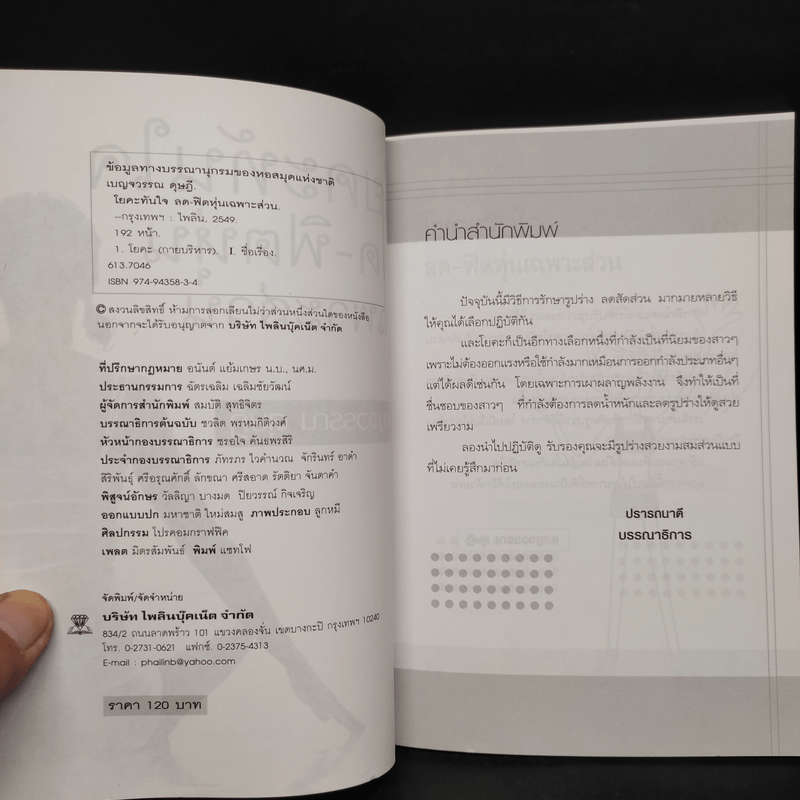 ข้อมูลทางบรรณานุกรมของหอสมุดแห่งชาติ
เบญจวรรณ ดุษฎี.
โยคะทันใจ ลด-ฟิตหุ่นเฉพาะส่วน.
–กรุงเทพฯ : ไพลิน, 2549.
192 หน้า.
1. โยคะ (กายบริหาร). I. ชื่อเรื่อง.
613.7046
ISBN 974-94358-3-4
© สงวนลิขสิทธิ์ ห้ามการลอกเลียนไม่ว่าส่วนหนึ่งส่วนใดของหนังสือ
นอกจากจะได้รับอนุญาตจาก บริษัท ไพลินบุ๊คเน็ต จำกัด
ที่ปรึกษากฎหมาย อนันต์ แย้มเกษร น.บ., นศ.ม.
ประธานกรรมการ ฉัตรเฉลิม เฉลิมชัยวัฒน์
ผู้จัดการสำนักพิมพ์ สมบัติ สุทธิจิตร
บรรณาธิการต้นฉบับ ชวลิต พรหมกิติวงศ์
หัวหน้ากองบรรณาธิการ ชรอใจ คันธพรสิริ
ประจำกองบรรณาธิการ ภัทรภร ไวคำนวณ จักรินทร์ อาดำ
สิริพันธุ์ ศรีอรุณศักดิ์ ลักขณา ศรีสอาด รัตติยา จันตาคำ
พิสูจน์อักษร วัลลิญา บางมด ปิยวรรณ์ กิจเจริญ
ออกแบบปก มหาชาติ ใหม่สมสู ภาพประกอบ ลูกหมี
ศิลปกรรม โปรคอมกราฟฟิค
เพลต มิตรสัมพันธ์ พิมพ์ แซทโฟ
จัดพิมพ์/จัดจำหน่าย
บริษัท ไพลินบุ๊คเน็ต จำกัด
834/2 ถนนลาดพร้าว 101 แขวงคลองจั่น เขตบางกะปิ กรุงเทพฯ 10240
โทร. 0-2731-0621 แฟกซ์. 0-2375-4313
E-mail : phailinb@yahoo.com
ราคา 120 บาท
คำนำสำนักพิมพ์
ปัจจุบันนี้มีวิธีการรักษารูปร่าง ลดสัดส่วน มากมายหลายวิธี
ให้คุณได้เลือกปฏิบัติกัน
และโยคะก็เป็นอีกทางเลือกหนึ่งที่กำลังเป็นที่นิยมของสาวๆ
เพราะไม่ต้องออกแรงหรือใช้กำลังมากเหมือนการออกกำลังประเภทอื่นๆ
แต่ได้ผลดีเช่นกัน โดยเฉพาะการเผาผลาญพลังงาน จึงทำให้เป็นที่
ชื่นชอบของสาวๆ ที่กำลังต้องการลดน้ำหนักและลดรูปร่างให้ดูสวย
เพรียวงาม
ลองนำไปปฏิบัติดู รับรองคุณจะมีรูปร่างสวยงามสมส่วนแบบ
ที่ไม่เคยรู้สึกมาก่อน
ปรารถนาดี
บรรณาธิการ